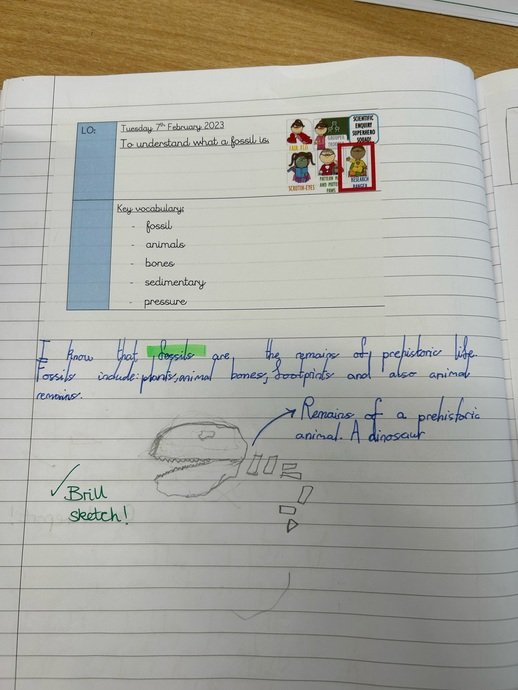 LO:
Tuesday 7th February 2023
To understand what a fossil is.
SCIENTIFIC
ENQUIRY
SUPERHERO
SQUAD
SCRUTIN-EYES
RESEARCH
RANGER
Key vocabulary:
- fossil
- animals
- bones
- sedimentary
- pressure
I know that fossils are the remains of prehistoric life.
Fossils include: plants, animal bones, footprints and also animal
remains.
Remains of a prehistoric
animal. A dinosaur
✓ Brill
sketch!